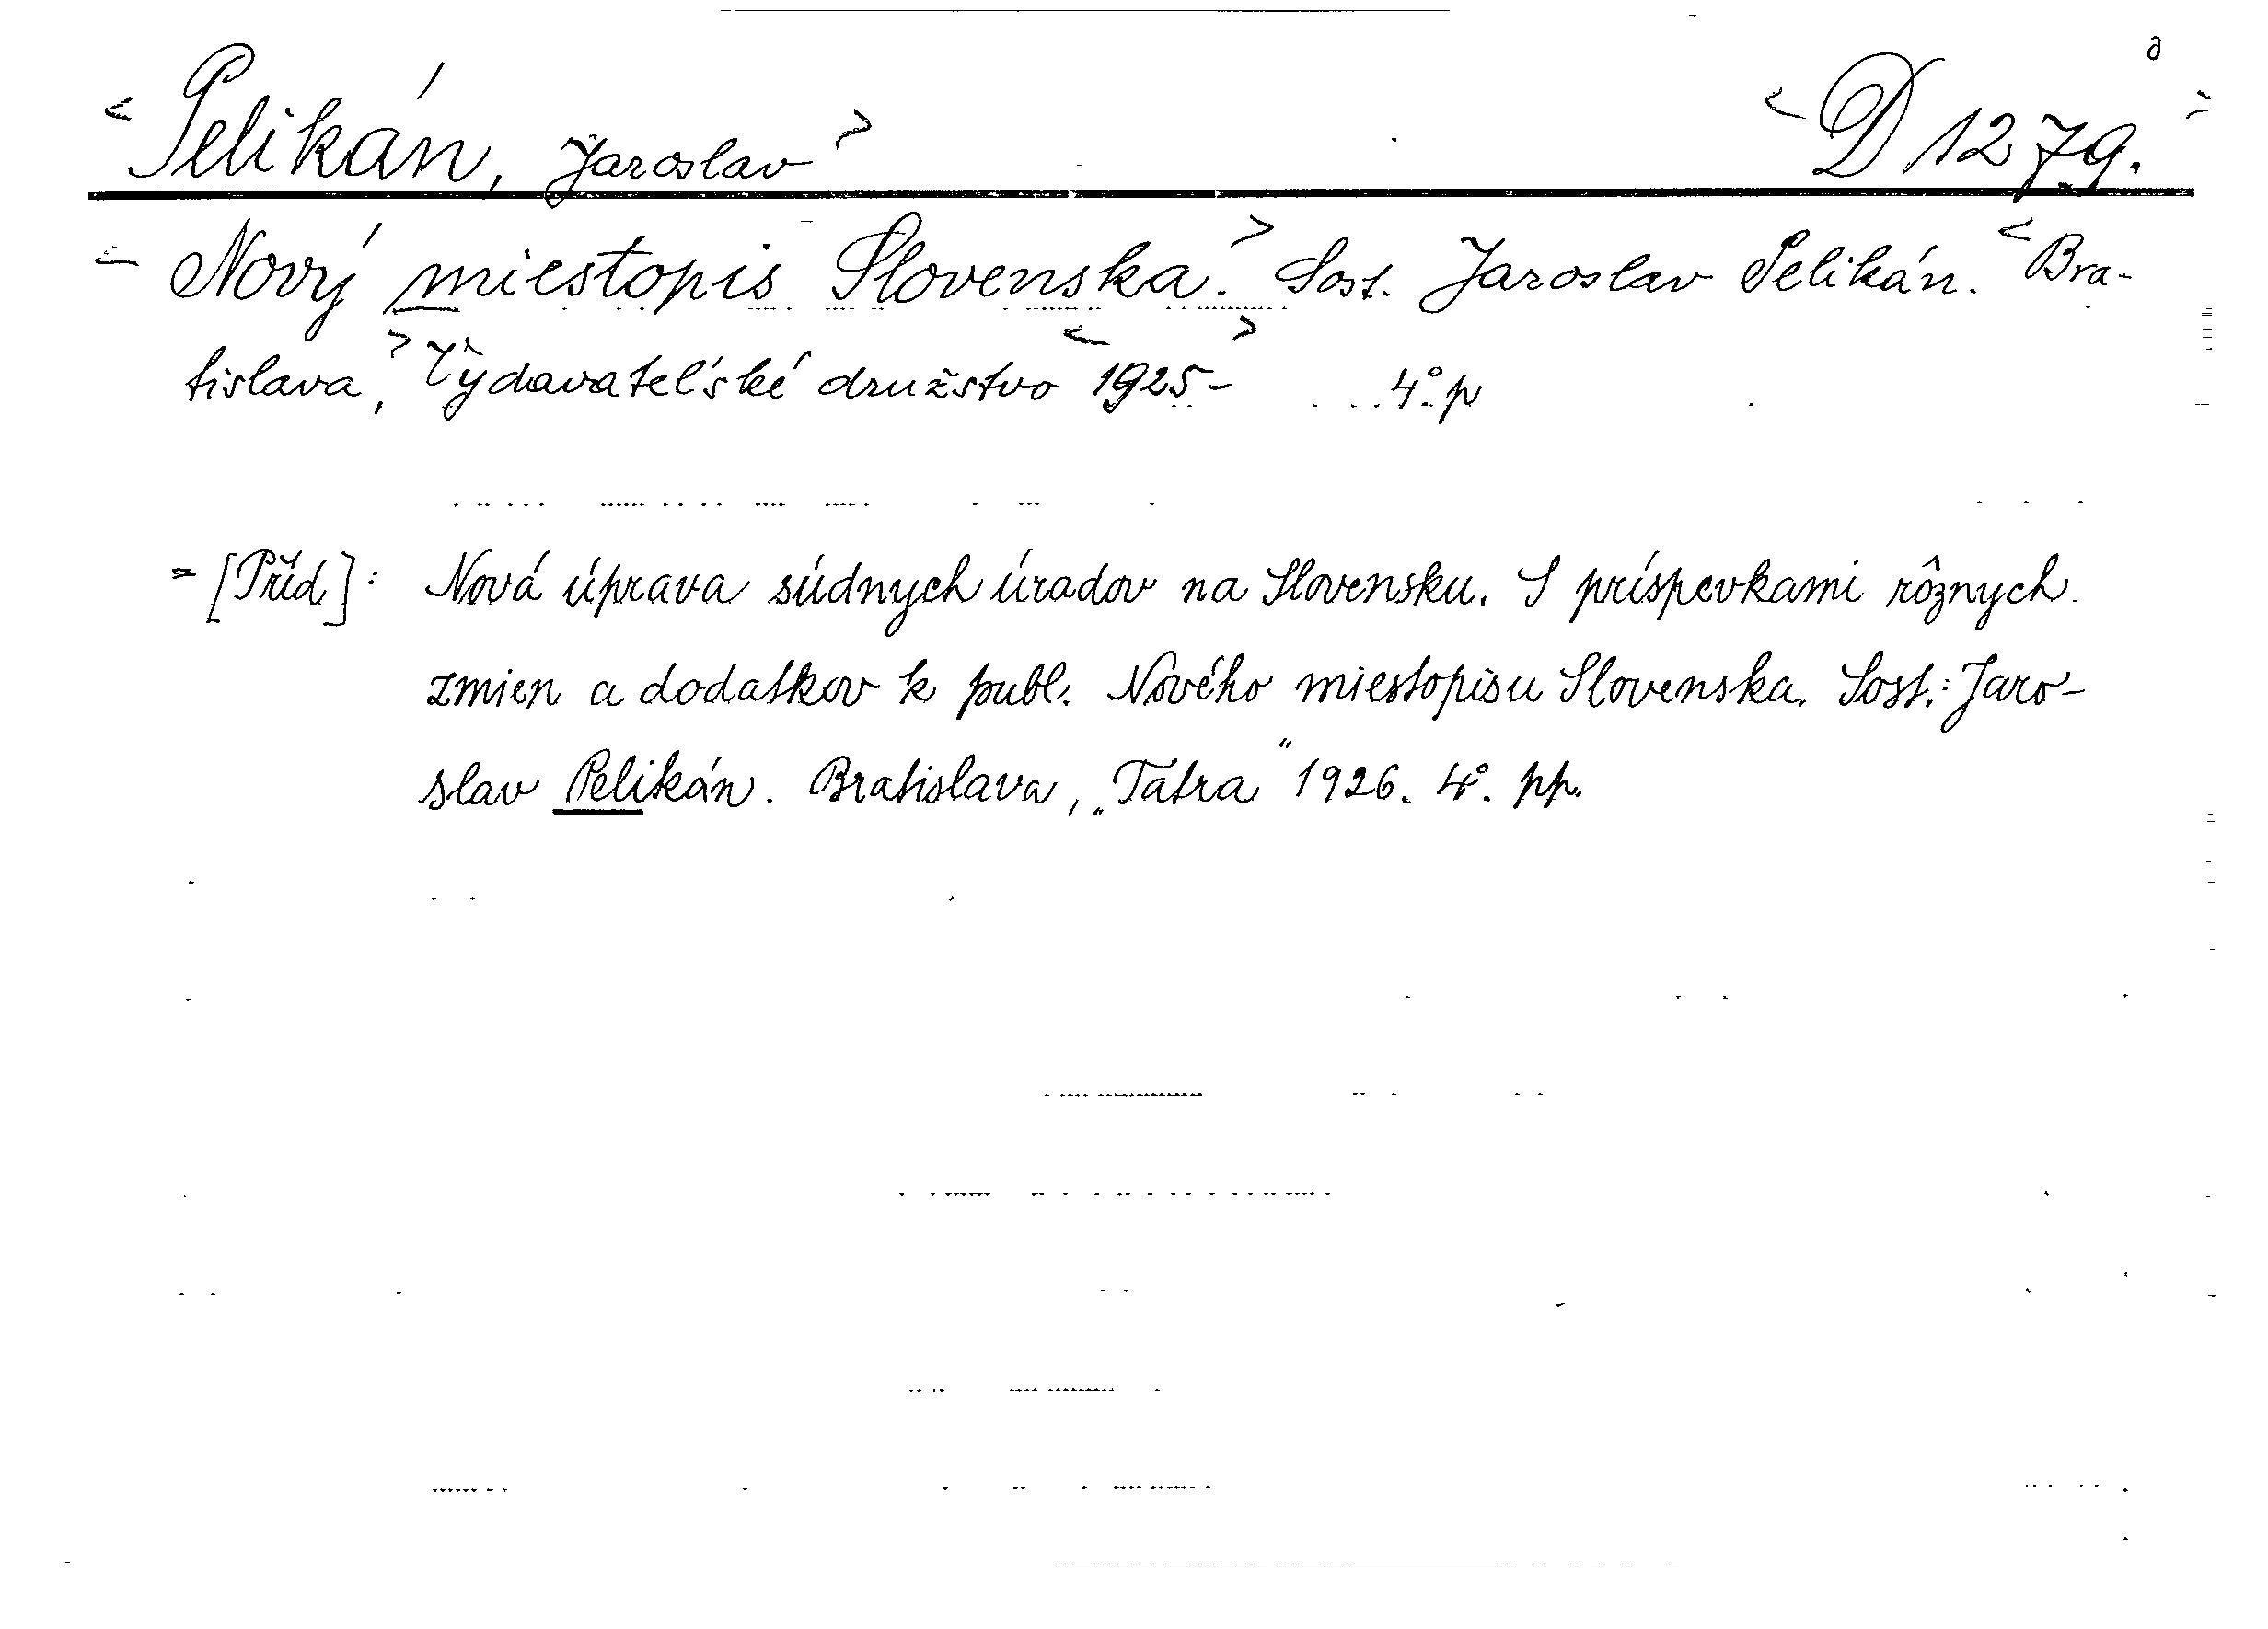 <Pelikán, Jaroslav> <D 1279.>
- Nový miestopis Slovenska.> Sost. Jaroslav Pelikán. <Bra-
tislava,> Vydavateľské družstvo <1925-> 4° p
= [Příd.]: Nová úprava súdnych úradov na Slovensku. S príspevkami rôznych
zmien a dodatkov k publ. Nového miestopisu Slovenska. Sost.: Jaro-
slav Pelikán. Bratislava, „Tatra“ 1926. 4°. pp.